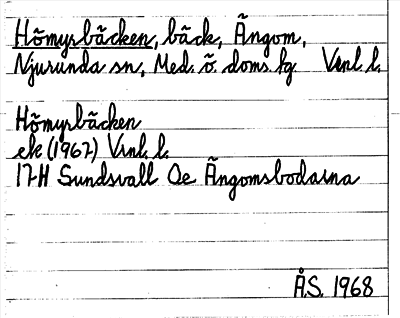 Hömyrbäcken, bäck, Ängom,
Njurunda sn, Med. ö. doms. fg. Vnl. l.
Hömyrbäcken
ek (1967) Vnl. l.
17H Sundsvall Oe Ängomsbodarna
Å.S. 1968